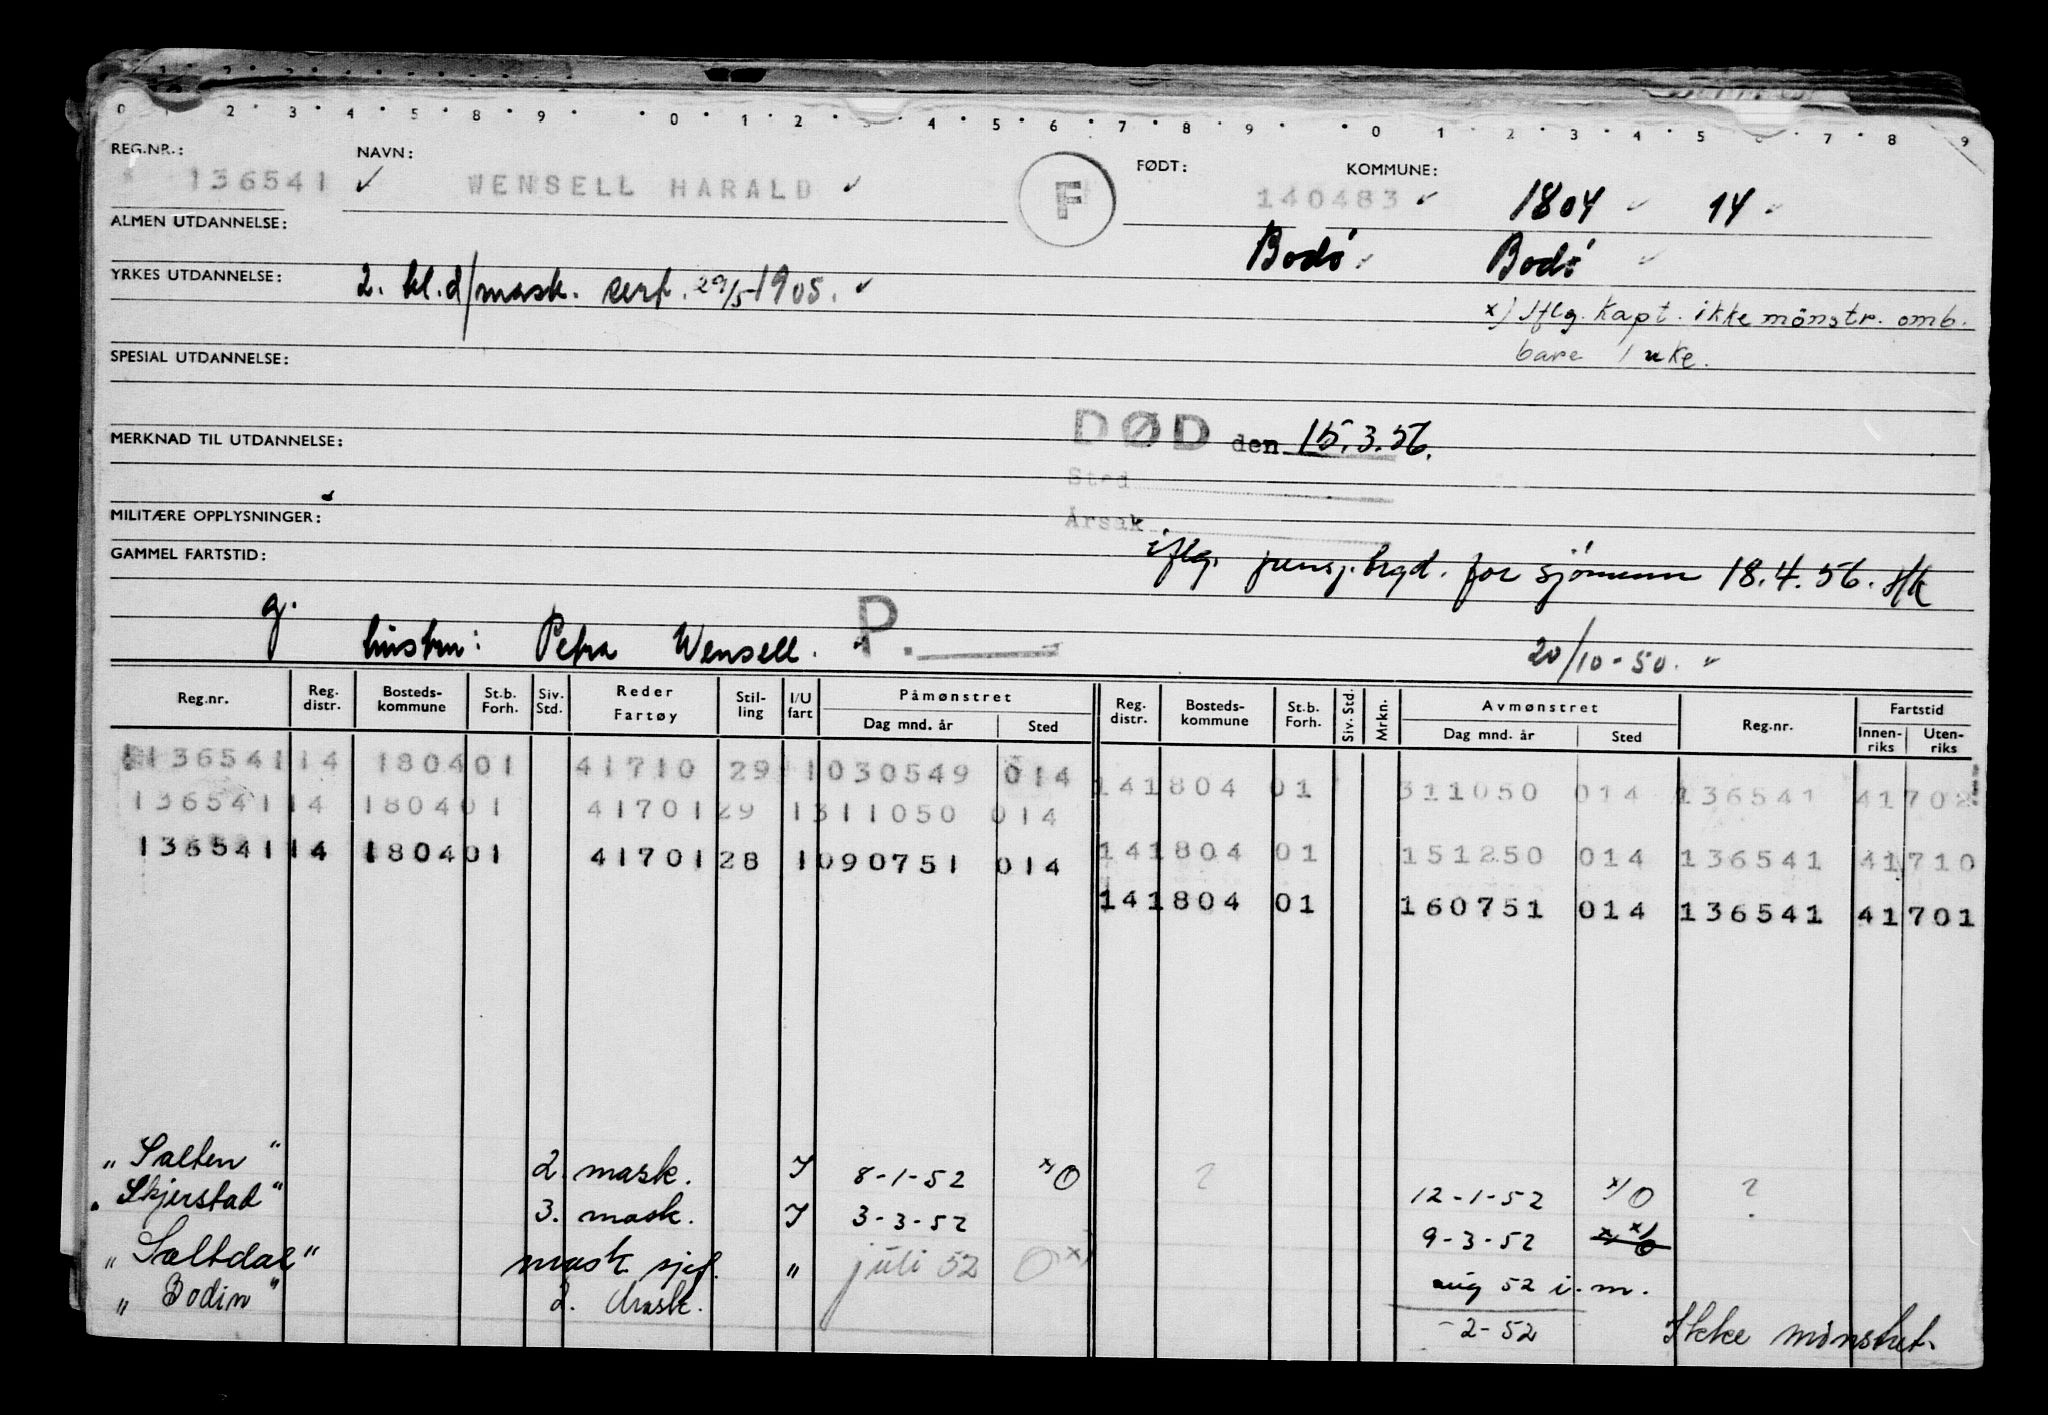 0 1 2 3 4 5 8 9 0 1 2 3 4 5 6 7 8 9 0 1 2 3 4 5 6 7 8 9
REG.NR.: NAVN: FØDT: KOMMUNE:
136541 ✓ WENSELL HARALD ✓ F 140483 ✓ 1804 ✓ 14 ✓
ALMEN UTDANNELSE:
Bodø ✓ Bodø ✓
YRKES UTDANNELSE: 2. kl. d/mask. serf. 29/5-1905. ✓
x) Iflg. Kapt. ikke mönstr. omb.
bare 1 uke.
SPESIAL UTDANNELSE:
DØD den 15.3.56.
MERKNAD TIL UTDANNELSE:
Sted
MILITÆRE OPPLYSNINGER:
Årsak
GAMMEL FARTSTID:
iflg. pensj.trygd. for sjömenn 18.4.56. HK
g. hustru: Petra Wensell. P. 20/10-50. ✓
Reg.nr. Reg. distr. Bosteds-kommune St.b. Forh. Siv. Std. Reder Fartøy Stil-ling I/U fart Påmønstret Dag mnd. år Sted Reg. distr. Bosteds-kommune St.b. Forh. Siv. Std. Mrkn. Avmønstret Dag mnd. år Sted Reg.nr. Fartstid Innen-riks Uten-riks
136541 14 1804 01 41710 29 1 030549 014
14 1804 01 311050 014 136541 41702
136541 14 1804 01 41701 29 1 311050 014
14 1804 01 151250 014 136541 41710
136541 14 1804 01 41701 28 1 090751 014
14 1804 01 160751 014 136541 41701
"Salten" 2. mask. I 8-1-52 x) O ? 12-1-52 x) O ?
"Skjerstad" 3. mask. I 3-3-52 9-3-52 x) x) O
"Saltdal" mask sjef. " juli 52 O x) aug 52 i.m.
"Bodin" 2. Mask. -2-52 Ikke mönstret.